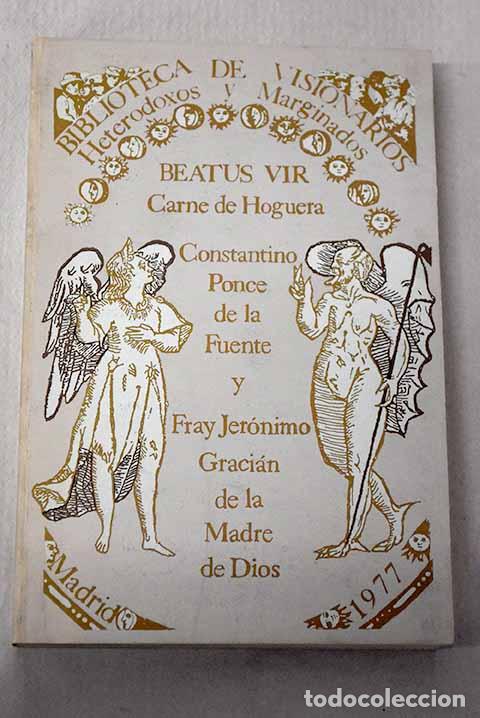 BIBLIOTECA DE VISIONARIOS
Heterodoxos y Marginados
BEATUS VIR
Carne de Hoguera
Constantino
Ponce
de la
Fuente
y
Fray Jerónimo
Gracián
de la
Madre
de Dios
Madrid
1977
todocoleccion